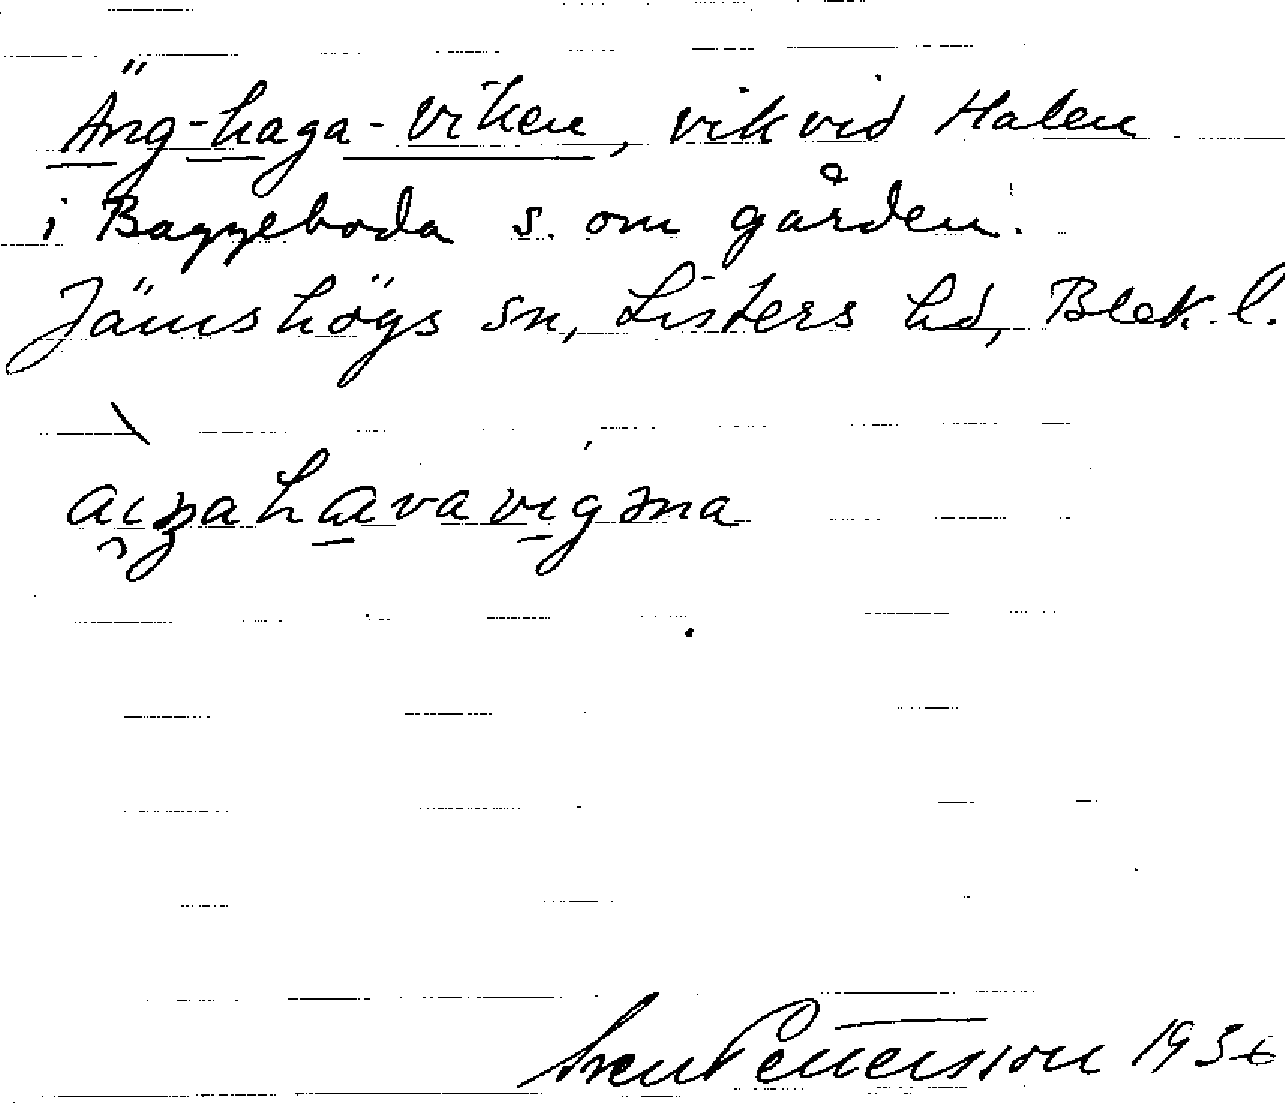 Äng-haga-viken, vik vid Halen
i Baggeboda s. om gården.
Jämshögs sn, Listers hd, Blek. l.
Sven Pettersson 1936